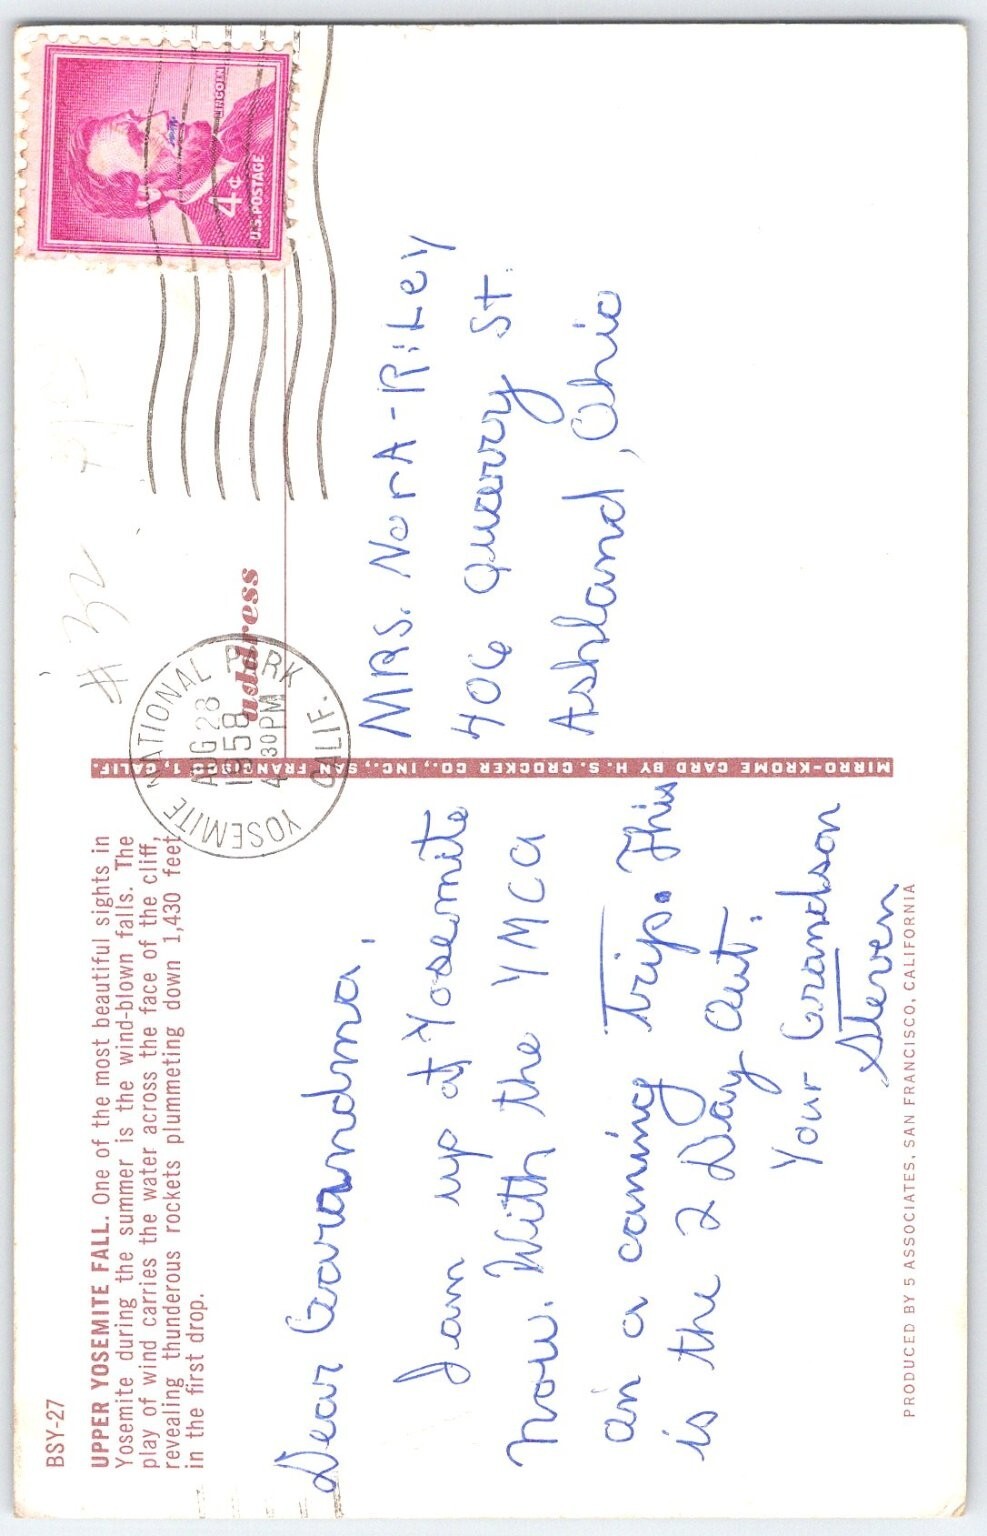 BSY-27
UPPER YOSEMITE FALL. One of the most beautiful sights in
Yosemite during the summer is the wind-blown falls. The
play of wind carries the water across the face of the cliff,
revealing thunderous rockets plummeting down 1,430 feet
in the first drop.
Dear Grandma,
I am up at Yosemite
now. With the YMCA
on a caming trip. This
is the 2 Day out.
Your Grandson
Steven
PRODUCED BY 5 ASSOCIATES, SAN FRANCISCO, CALIFORNIA
MIRRO-KROME CARD BY H. S. CROCKER CO., INC., SAN FRANCISCO 1, CALIF.
YOSEMITE NATIONAL PARK
AUG 28
1958
4 30 PM
CALIF.
#32
address
LINCOLN
4¢
U.S. POSTAGE
MRS. NorA-RiLey
406 Quarry St.
Ashland, Ohio